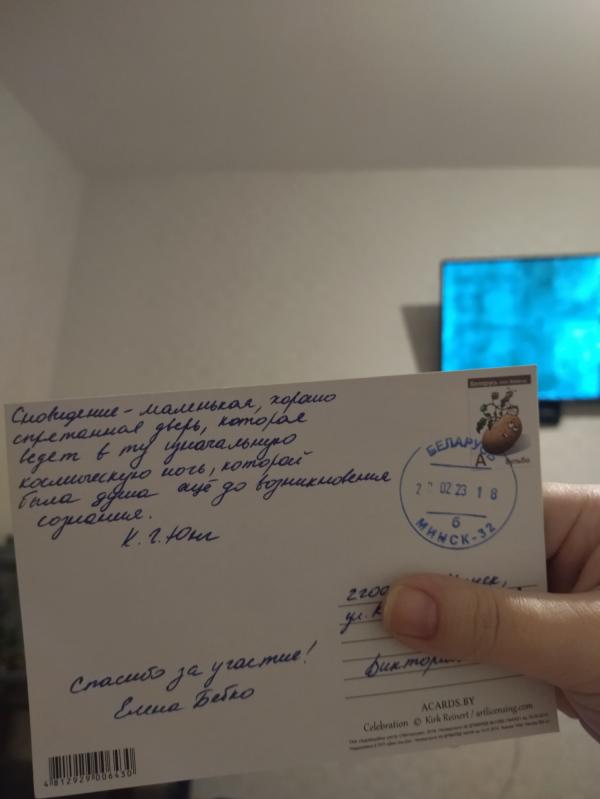 Сновидение - маленькая, хорошо
спрятанная дверь, которая
ведёт в ту изначальную
космическую ночь, которой
была душа ещё до возникновения
сознания.
К. Г. Юнг
Спасибо за участие!
Елена Бебко
Беларусь
А
бульба
БЕЛАРУСЬ
02 23 18
б
МИНСК-32
ул.
ACARDS.BY
Celebration © Kirk Reinert / artlicensing.com
4 812929 006430